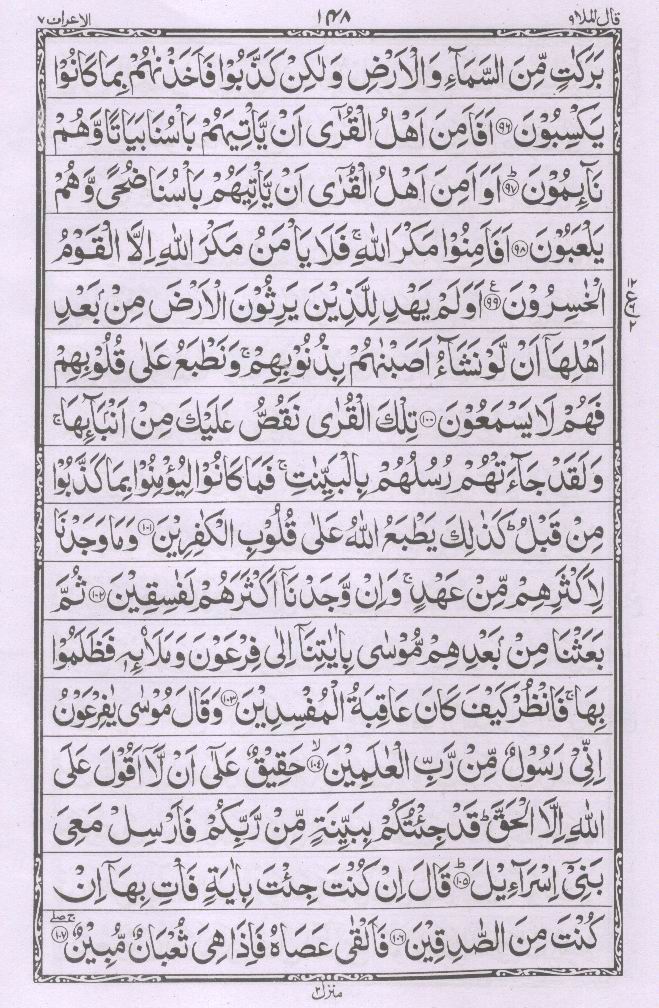 قال الملا ٩ ١٤٨ الاعراف ٧
بَرَكٰتٍ مِّنَ السَّمَآءِ وَالْاَرْضِ وَلٰكِنْ كَذَّبُوْا فَاَخَذْنٰهُمْ بِمَا كَانُوْا
يَكْسِبُوْنَ ﴿۹۶﴾ اَفَاَمِنَ اَهْلُ الْقُرٰٓى اَنْ يَّاْتِيَهُمْ بَاْسُنَا بَيَاتًا وَّهُمْ
نَآئِمُوْنَ ؕ﴿۹۷﴾ اَوَاَمِنَ اَهْلُ الْقُرٰٓى اَنْ يَّاْتِيَهُمْ بَاْسُنَا ضُحًى وَّهُمْ
يَلْعَبُوْنَ ﴿۹۸﴾ اَفَاَمِنُوْا مَكْرَ اللّٰهِ ۚ فَلَا يَاْمَنُ مَكْرَ اللّٰهِ اِلَّا الْقَوْمُ
الْخٰسِرُوْنَ ﴿۹۹﴾ ع اَوَلَمْ يَهْدِ لِلَّذِيْنَ يَرِثُوْنَ الْاَرْضَ مِنْۢ بَعْدِ
١٢ ع ٩ ٢
اَهْلِهَآ اَنْ لَّوْ نَشَآءُ اَصَبْنٰهُمْ بِذُنُوْبِهِمْ ۚ وَنَطْبَعُ عَلٰى قُلُوْبِهِمْ
فَهُمْ لَا يَسْمَعُوْنَ ﴿۱۰۰﴾ تِلْكَ الْقُرٰى نَقُصُّ عَلَيْكَ مِنْ اَنْۢبَآئِهَا ۚ
وَلَقَدْ جَآءَتْهُمْ رُسُلُهُمْ بِالْبَيِّنٰتِ ۚ فَمَا كَانُوْا لِيُؤْمِنُوْا بِمَا كَذَّبُوْا
مِنْ قَبْلُ ؕ كَذٰلِكَ يَطْبَعُ اللّٰهُ عَلٰى قُلُوْبِ الْكٰفِرِيْنَ ﴿۱۰۱﴾ وَمَا وَجَدْنَا
لِاَكْثَرِهِمْ مِّنْ عَهْدٍ ۚ وَاِنْ وَّجَدْنَآ اَكْثَرَهُمْ لَفٰسِقِيْنَ ﴿۱۰۲﴾ ثُمَّ
بَعَثْنَا مِنْۢ بَعْدِهِمْ مُّوْسٰى بِاٰيٰتِنَآ اِلٰى فِرْعَوْنَ وَمَلَا۟ئِهٖ فَظَلَمُوْا
بِهَا ۚ فَانْظُرْ كَيْفَ كَانَ عَاقِبَةُ الْمُفْسِدِيْنَ ﴿۱۰۳﴾ وَقَالَ مُوْسٰى يٰفِرْعَوْنُ
اِنِّىْ رَسُوْلٌ مِّنْ رَّبِّ الْعٰلَمِيْنَ ۙ﴿۱۰۴﴾ حَقِيْقٌ عَلٰٓى اَنْ لَّآ اَقُوْلَ عَلَى
اللّٰهِ اِلَّا الْحَقَّ ؕ قَدْ جِئْتُكُمْ بِبَيِّنَةٍ مِّنْ رَّبِّكُمْ فَاَرْسِلْ مَعِىَ
بَنِىْٓ اِسْرَآءِيْلَ ؕ﴿۱۰۵﴾ قَالَ اِنْ كُنْتَ جِئْتَ بِاٰيَةٍ فَاْتِ بِهَآ اِنْ
كُنْتَ مِنَ الصّٰدِقِيْنَ ﴿۱۰۶﴾ فَاَلْقٰى عَصَاهُ فَاِذَا هِىَ ثُعْبَانٌ مُّبِيْنٌ ۚۖ﴿۱۰۷﴾
منزل ٢